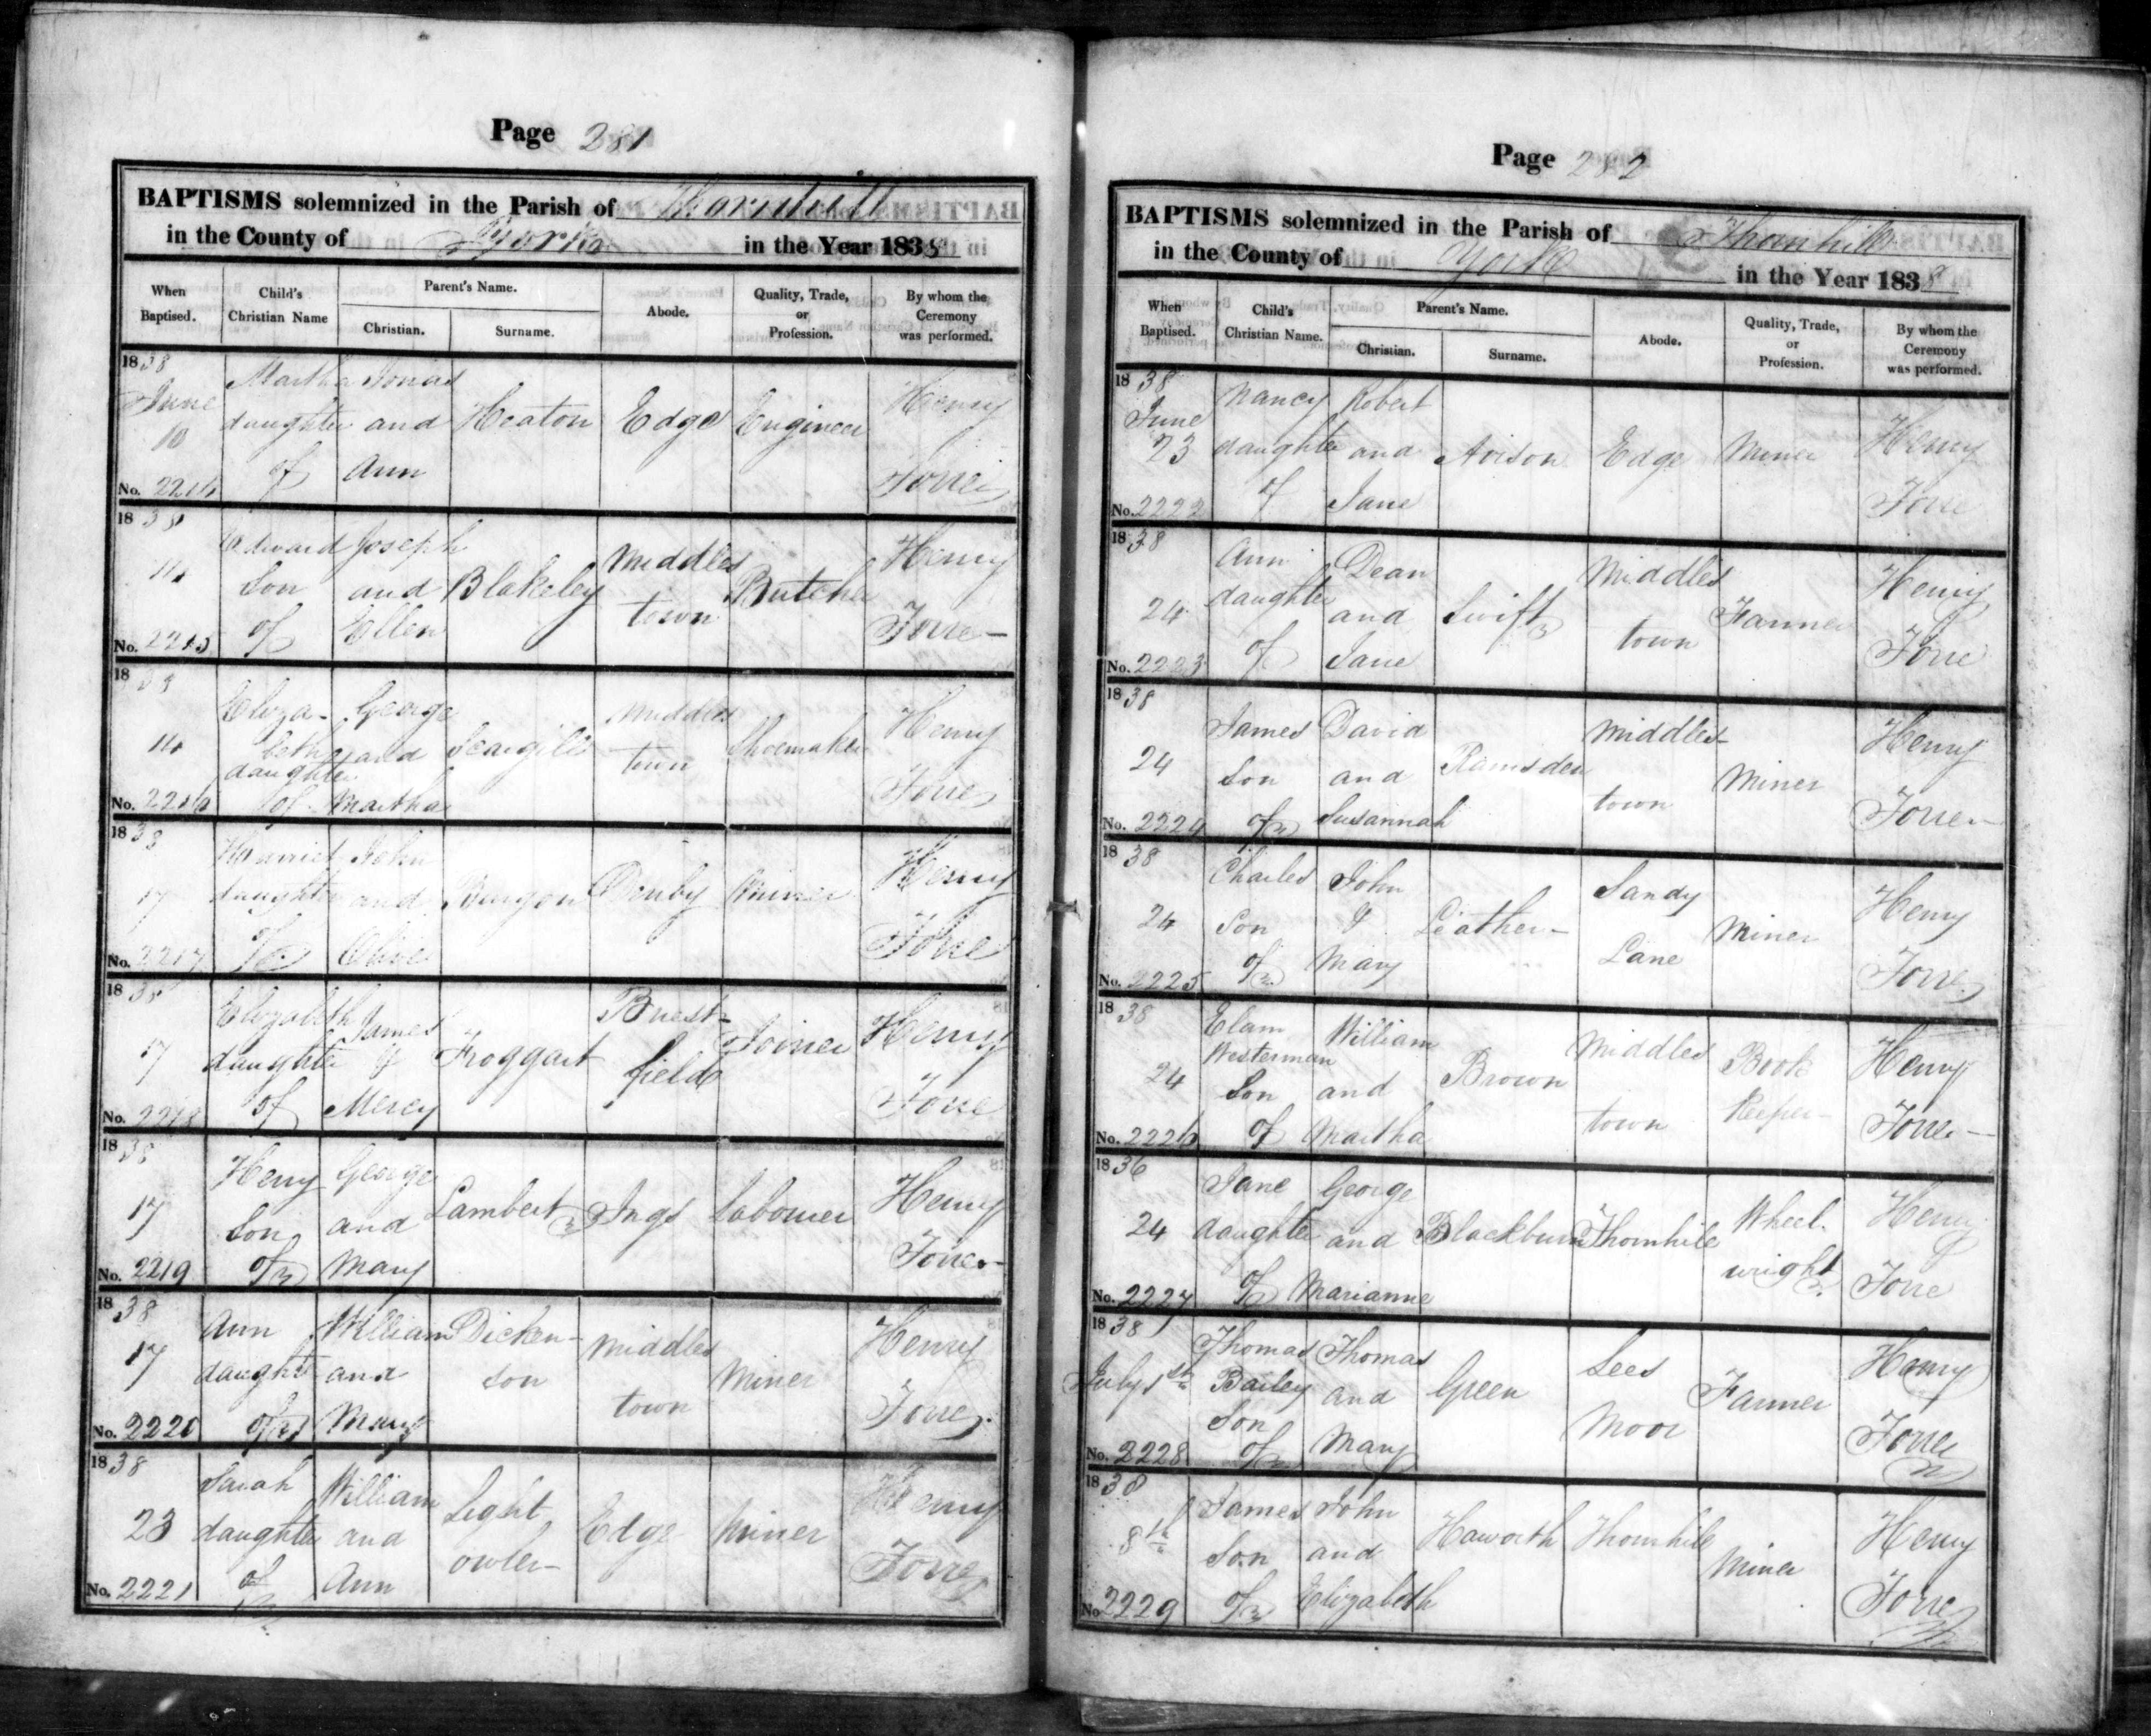 Page 281
BAPTISMS solemnized in the Parish of Thornhill
in the County of York in the Year 1838
When Baptised.
Child's Christian Name
Parent's Name.
Christian.
Surname.
Abode.
Quality, Trade, or Profession.
By whom the Ceremony was performed.
1838
June 10
No. 2214
Martha daughter of
Jonas and Ann
Heaton
Edge
Engineer
Henry Torre
1838
14
No. 2215
Edward Son of
Joseph and Ellen
Blakeley
Middles town
Butcher
Henry Torre
18
14
No. 2216
Eliza- beth daughter of
George and Martha
Scargill
Middles town
Shoemaker
Henry Torre
1838
17
No. 2217
Harriet daughter of
John and Olive
Denby
Miner
Henry Torre
1838
17
No. 2218
Elizabeth daughter of
James & Mercy
Froggart
Briest- field
Joiner
Henry Torre
1838
17
No. 2219
Henry Son of
George and Mary
Lambert
Ings
Labourer
Henry Torre
1838
17
No. 2220
Ann daughter of
William and Mary
Dicken- son
Middles town
Miner
Henry Torre
1838
23
No. 2221
Sarah daughter of
William and Ann
Light owler
Edge
Miner
Henry Torre
Page 282
BAPTISMS solemnized in the Parish of Thornhill
in the County of York in the Year 1838
When Baptised.
Child's Christian Name.
Parent's Name.
Christian.
Surname.
Abode.
Quality, Trade, or Profession.
By whom the Ceremony was performed.
1838
June 23
No. 2222
Nancy daughter of
Robert and Jane
Avison
Edge
Miner
Henry Torre
1838
24
No. 2223
Ann daughter of
Dean and Jane
Swift
Middles town
Farmer
Henry Torre
1838
24
No. 2224
James Son of
David and Susannah
Ramsden
Middles- town
Miner
Henry Torre
1838
24
No. 2225
Charles Son of
John & Mary
Leather
Sandy Lane
Miner
Henry Torre
1838
24
No. 2226
Elam Westerman Son of
William and Martha
Brown
Middles town
Book Keeper
Henry Torre
1836
24
No. 2227
Jane daughter of
George and Marianne
Blackburn
Thornhill
Wheel- wright
Henry Torre
1838
July 1st
No. 2228
Thomas Bailey Son of
Thomas and Mary
Green
Lees Moor
Farmer
Henry Torre
1838
8th
No 2229
James Son of
John and Elizabeth
Haworth
Thornhill
Miner
Henry Torre